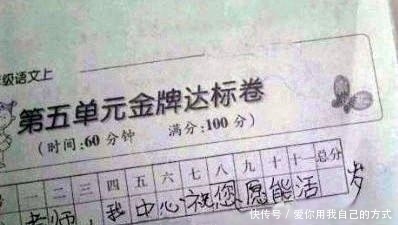 级语文上
第五单元金牌达标卷
(时间:60 分钟 满分:100 分)
一 二 三 四 五 六 七 八 九 十 十一 总分
老师,我中心祝您愿能活 岁
快传号／爱你用我自己的方式